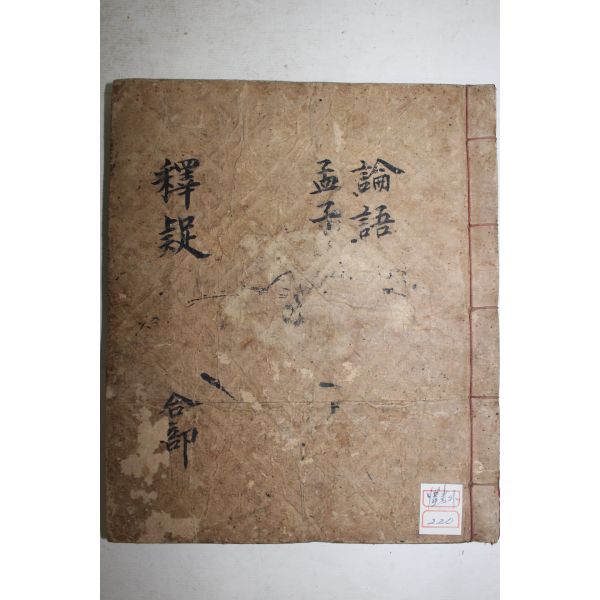 論語
孟子
下
釋疑
合部
220